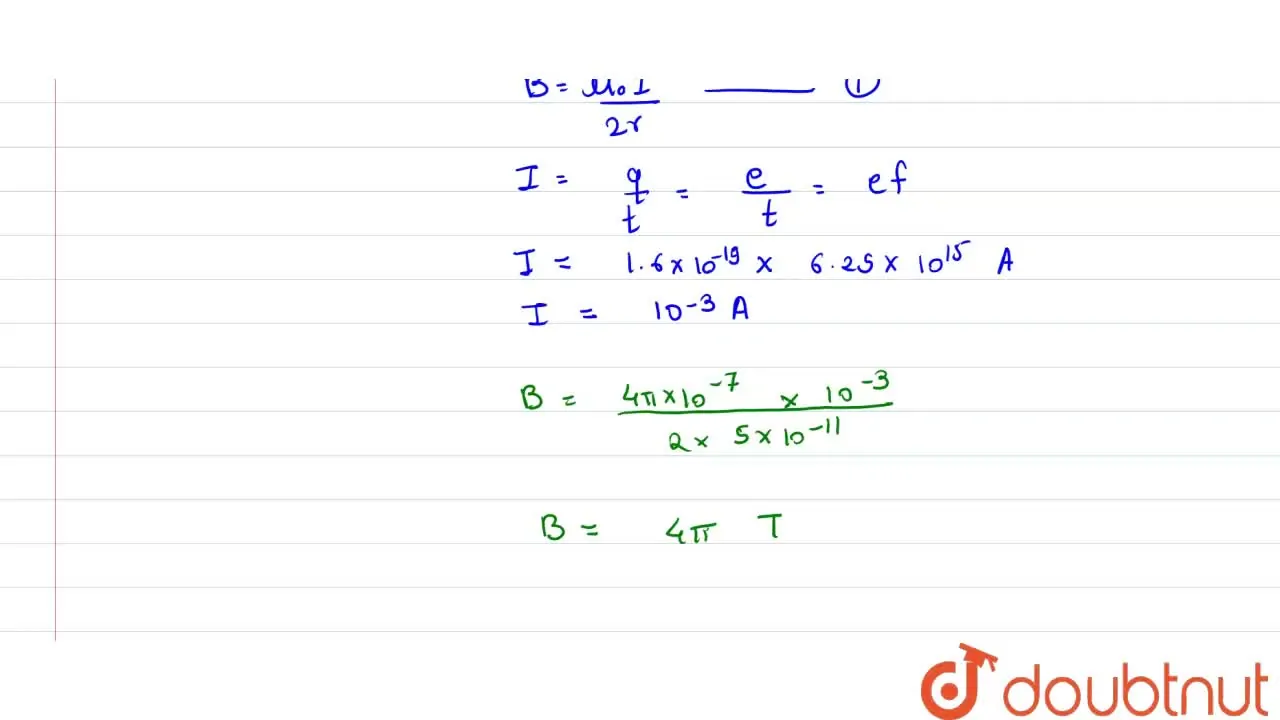 B = μ₀I/2r ——— ①
I = q/t = e/t = ef
I = 1.6×10⁻¹⁹ × 6.25×10¹⁵ A
I = 10⁻³ A
B = 4π×10⁻⁷ × 10⁻³ / 2× 5×10⁻¹¹
B = 4π T
doubtnut